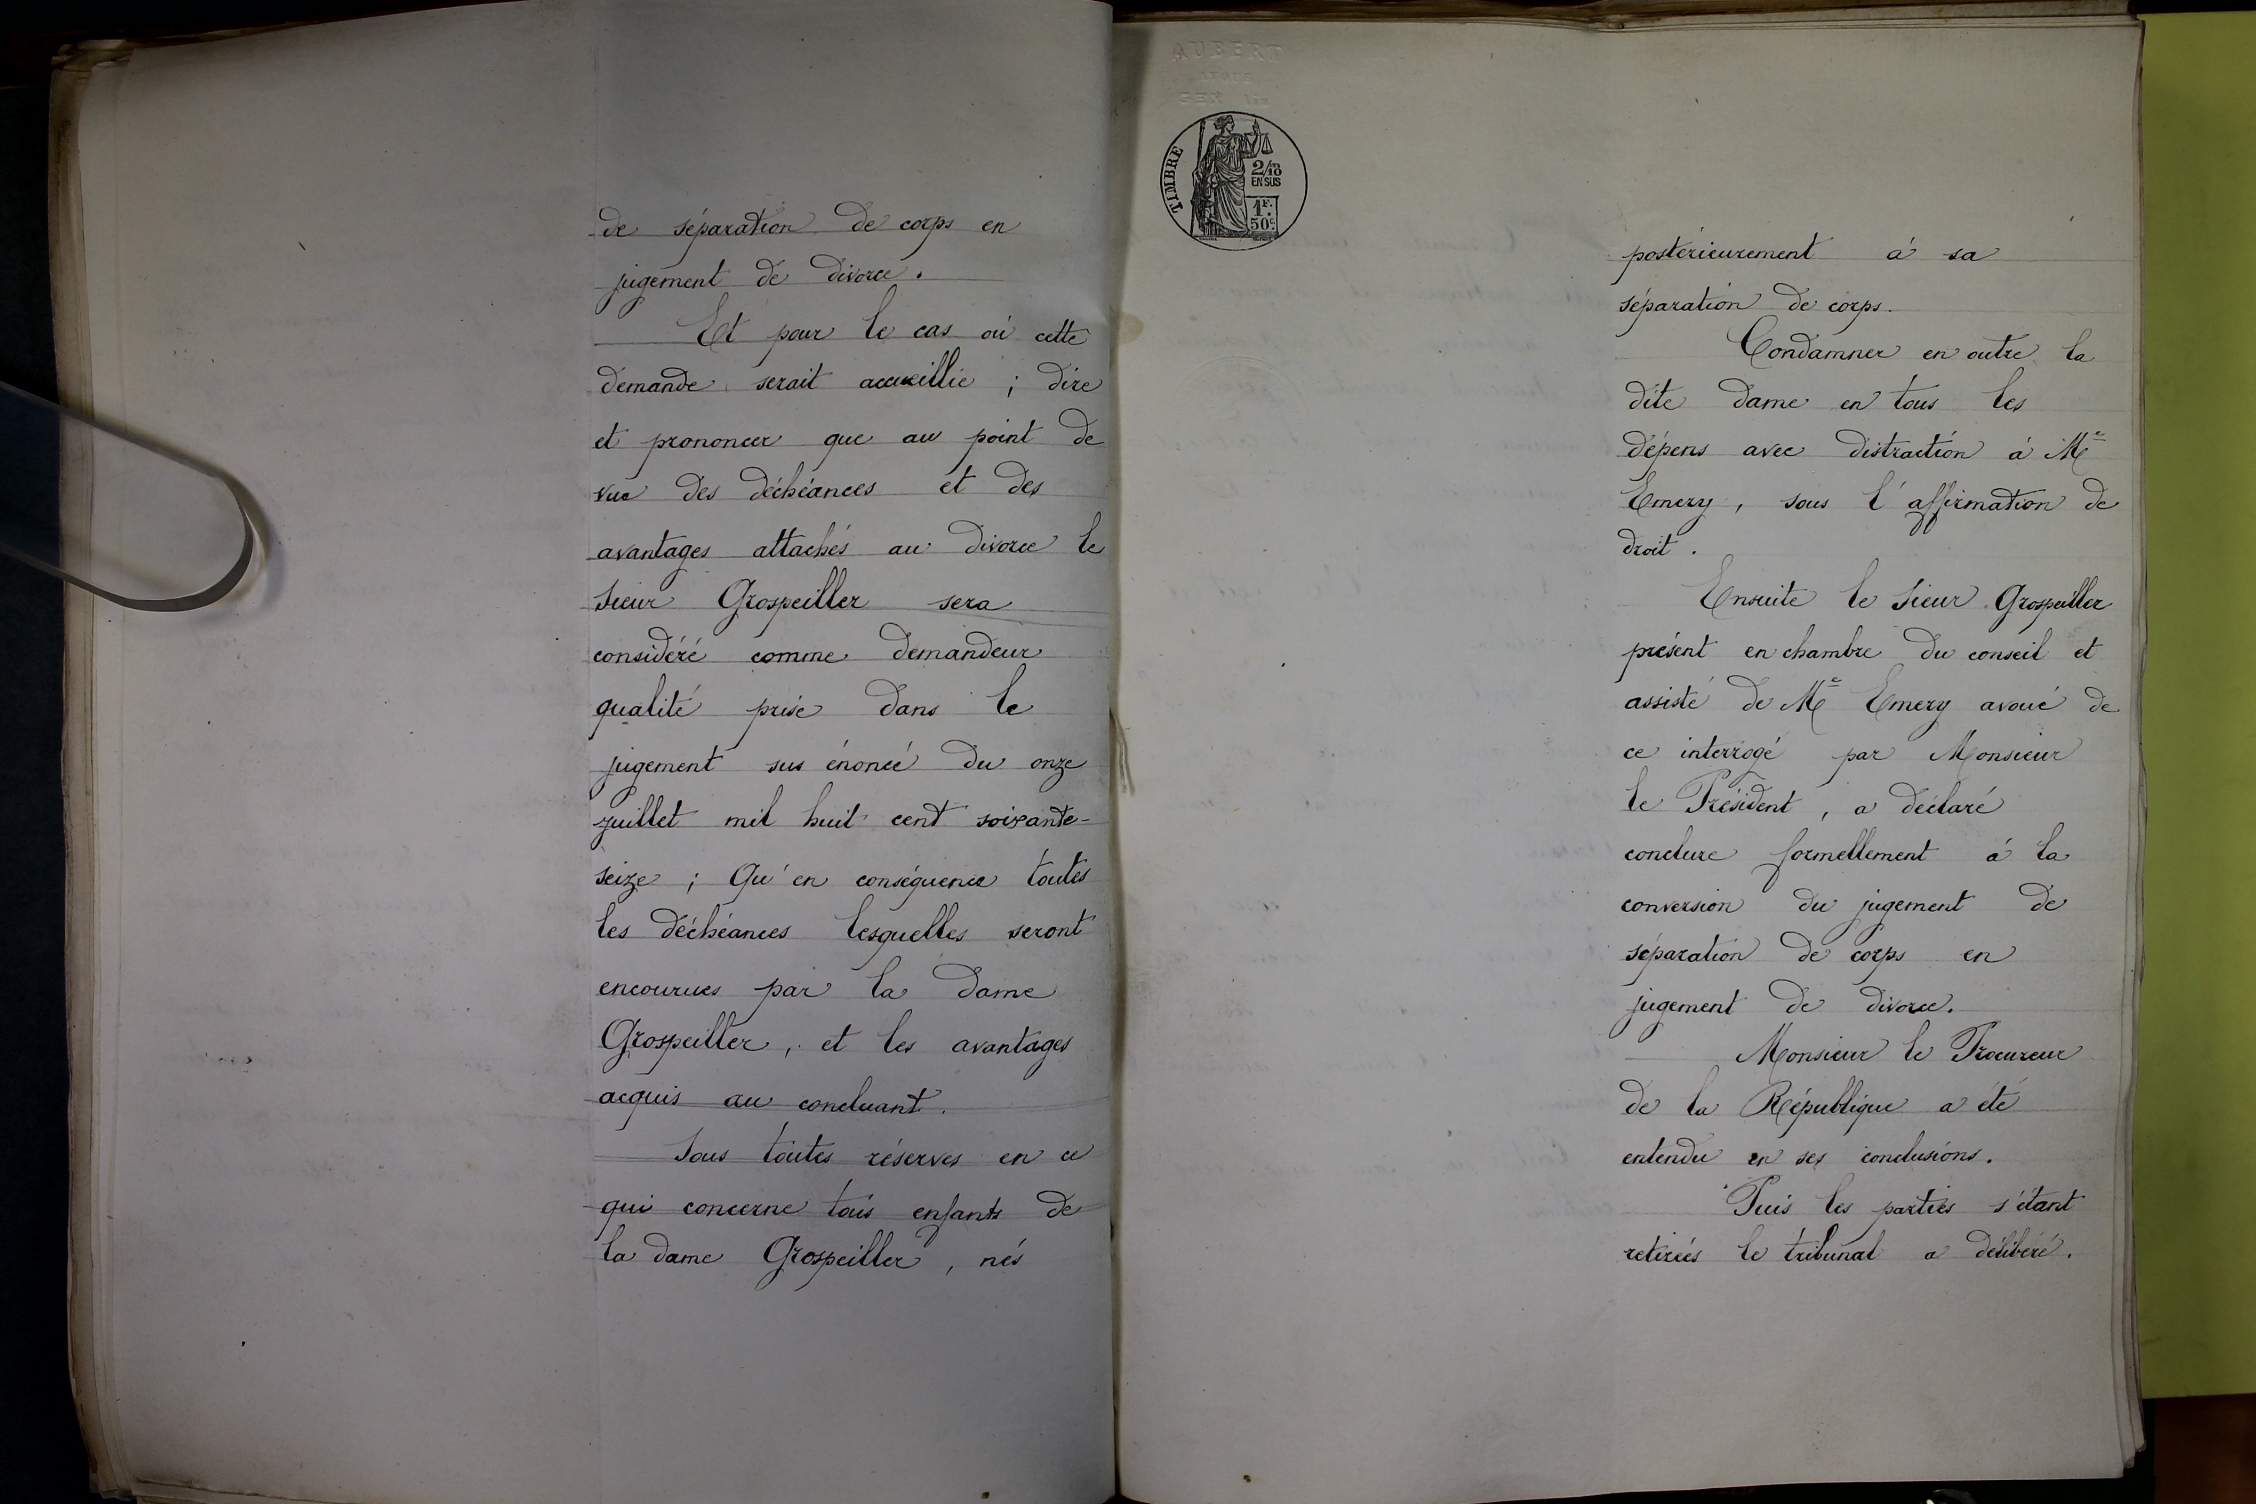 de séparation de corps en
jugement de divorce.
Et pour le cas où cette
demande serait accueillie ; dire
et prononcer que au point de
vue des déchéances et des
avantages attachés au divorce le
sieur Grospeiller sera
considéré comme demandeur
qualité prise dans le
jugement sus énoncé du onze
juillet mil huit cent soixante-
seize ; Qu'en conséquence toutes
les déchéances lesquelles seront
encourues par la dame
Grospeiller, et les avantages
acquis au concluant.
Sous toutes réserves en ce
qui concerne tous enfants de
la dame Grospeiller, nés
AUBERT
AVOUÉ
GEX
TIMBRE
2/10
EN SUS
1F.
50c.
postérieurement à sa
séparation de corps.
Condamner en outre la
dite dame en tous les
dépens avec distraction à Me
Emery, sous l'affirmation de
droit.
Ensuite le sieur Grospeiller
présent en chambre du conseil et
assisté de Me Emery avoué de
ce interrogé par Monsieur
le Président, a déclaré
conclure formellement à la
conversion du jugement de
séparation de corps en
jugement de divorce.
Monsieur le Procureur
de la République a été
entendu en ses conclusions.
Puis les parties s'étant
retirées le tribunal a délibéré.